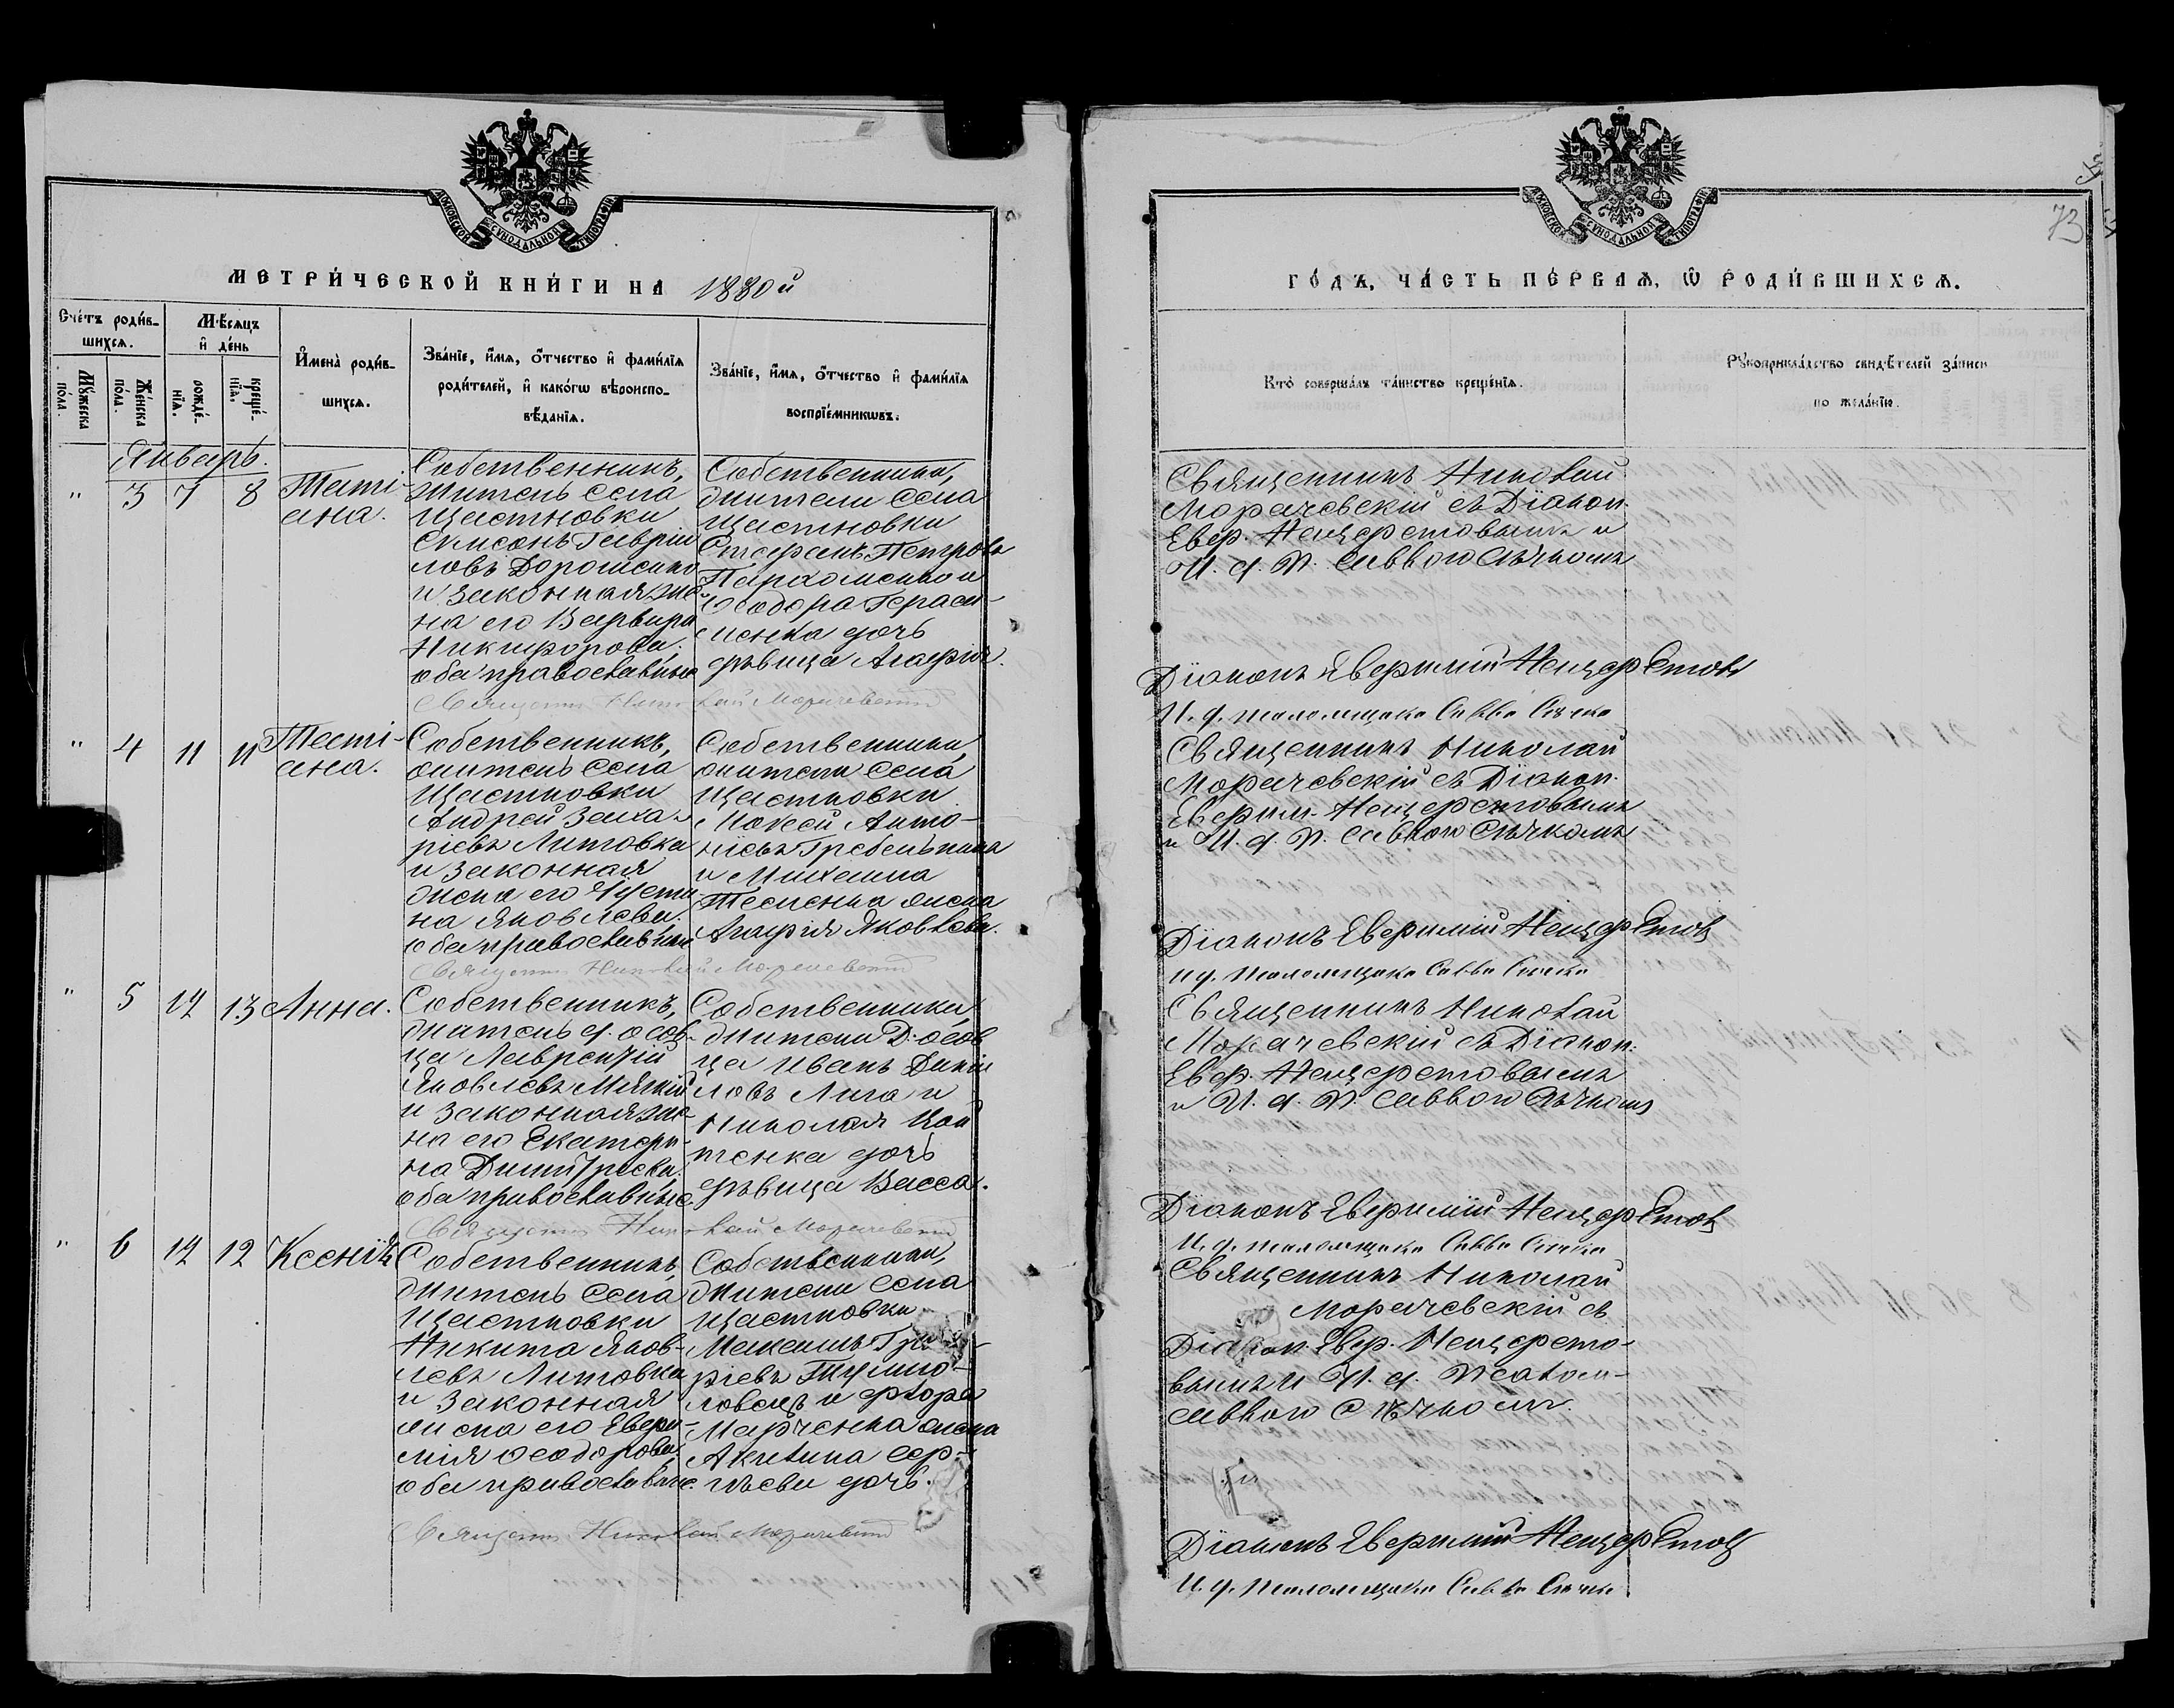 МОСКОВСКОЙ СѴНОДАЛЬНОЙ ТИПОГРАФІИ
МЕТРИ́ЧЕСКОЙ КНИ́ГИ НА 1880й
Сче́тъ роди́в-
шихсѧ.
Мѣ́сѧцъ
и҆ де́нь
Му́жеска
пола.
Же́нска
по́ла.
рожде́-
нїѧ.
креще́-
нїѧ.
И҆мена̀ роди́в-
шихсѧ.
Зва́нїе, и҆́мѧ, ѻ҆́тчество и҆ фами́лїѧ
роди́телей, и҆ како́гѡ вѣроиспо-
вѣ́данїѧ.
Зва́нїе, и҆́мѧ, ѻ҆́тчество и҆ фами́лїѧ
воспрїе́мникѡвъ.
Январь.
" 3 7 8
Таті-
ана.
Собственникъ,
житель села
Щастновки
Симеонъ Гаврiи
ловъ Дорошенко
и законная же-
на его Варвара
Никифорова,
оба православные
Собственники,
жители села
Щастновки
Стефанъ Петровъ
Пархоменко и
Ѳеодора Гераси-
менка дочь
дѣвица Агафiя.
Священникъ Николай Морачевскiй
" 4 11 11
Таті-
ана.
Собственникъ,
житель села
Щастновки
Андрей Заха-
рiевъ Литовка
и законная
жена его Усти-
на Яковлева.
оба православные
Собственники,
жители села
Щастновки
Мокей Анто-
нiевъ Гребельника
и Михаила
жена
Агафiя Яковлева.
Священникъ Николай Морачевскiй
" 5 12 13
Анна.
Собственникъ,
житель д. Осов-
ца Лаврентiй
Яковлевъ Мягкiй
и законная же-
на его Екатери-
на Димитрiева,
оба православные.
Собственники,
жители д. Осов
ца Иванъ Данiи
ловъ Лига и
Николая Коп
тенка дочь
дѣвица Васса.
Священникъ Николай Морачевскiй
" 6 12 12
Ксенiя
Собственникъ,
житель села
Щастновки
Никита Яков-
левъ Литовка
и законная
жена его Евфи-
мiя Ѳеодорова,
оба православные.
Собственники,
жители села
Щастновки
Максимъ
рiевъ
и
Марченка жена
Акилина Сер-
гѣева дочь.
Священникъ Николай Морачевскiй
ГО́ДЪ, ЧА́СТЬ ПЕ́РВАѦ, Ѡ҆ РОДИ́ВШИХСѦ.
73
МОСКОВСКОЙ СѴНОДАЛЬНОЙ ТИПОГРАФІИ
Кто̀ соверша́лъ та́инство креще́нїѧ.
Рꙋкоприкла́дство свидѣ́телей за́писи
по жела́нїю.
Священникъ Николай
Морачевскiй съ Дiакон.
Евф. Нещеретовымъ и
И. д. П. Саввою Сѣчкомъ
Дiаконъ Евфимiй Нещеретовъ
И. д. псаломщика Савва Сѣчко
Священникъ Николай
Морачевскiй съ Дiакон.
Евфим. Нещеретовымъ
и И. д. П. Саввою Сѣчкомъ
Дiаконъ Евфимiй Нещеретовъ
И д. псаломщика Савва Сѣчко
Священникъ Николай
Морачевскiй съ Дiакон.
Евф. Нещеретовымъ
и И. д. П. Саввою Сѣчкомъ
Дiаконъ Евфимiй Нещеретовъ
И. д. псаломщика Савва Сѣчко
Священникъ Николай
Морачевскiй съ
Дiакон. Евф. Нещерето-
вымъ и И. д. Псалом.
Саввою Сѣчкомъ.
Дiаконъ Евфимiй Нещеретовъ
И. д. псаломщика Савва Сѣчко